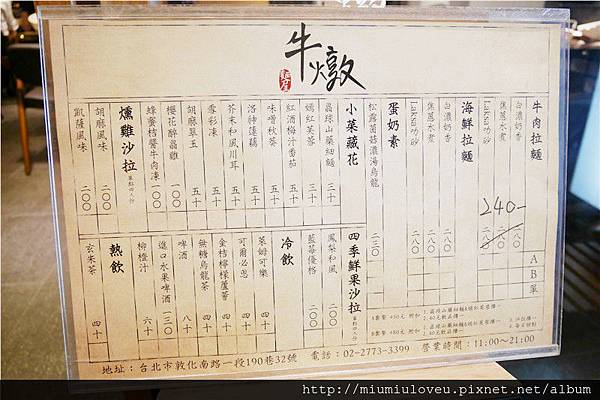 牛燉
麵屋
牛肉拉麵
白濃奶香 二八〇
焦蔥水煮 二八〇
Laksa叻砂 二八〇
240-
海鮮拉麵
白濃奶香 二八〇
焦蔥水煮 二八〇
Laksa叻砂 二八〇
蛋奶素
松露菌菇濃湯烏龍 二三〇
A
B
單
小菜藏花
蟲琮山藥細麵 三十
嫣紅芙蓉 三十
紅酒梅汁番茄 五十
味噌秋葵 五十
洛神蓮藕 五十
芥末和風川耳 五十
雪彩凍 五十
胡麻翠玉 五十
櫻花醉蟲雞 一〇〇
蜂蜜桔醬牛肉凍 一〇〇
燻雞沙拉 單點四人份
胡麻風味 二〇〇
凱薩風味 二〇〇
四季鮮果沙拉 單點四人份
鳳梨和風 二〇〇
藍莓優格 二〇〇
冷飲
萊姆可樂 六十
可爾必思 六十
金桔檸檬蘆薈 六十
無糖烏龍茶 四十
啤酒 八十
進口水果啤酒 一三〇
柳橙汁 六十
熱飲
玄米茶 四十
地址：台北市敦化南路一段190巷32號 電話：02-2773-3399 營業時間：11:00~21:00
http://miumiuloveu.pixnet.net/album